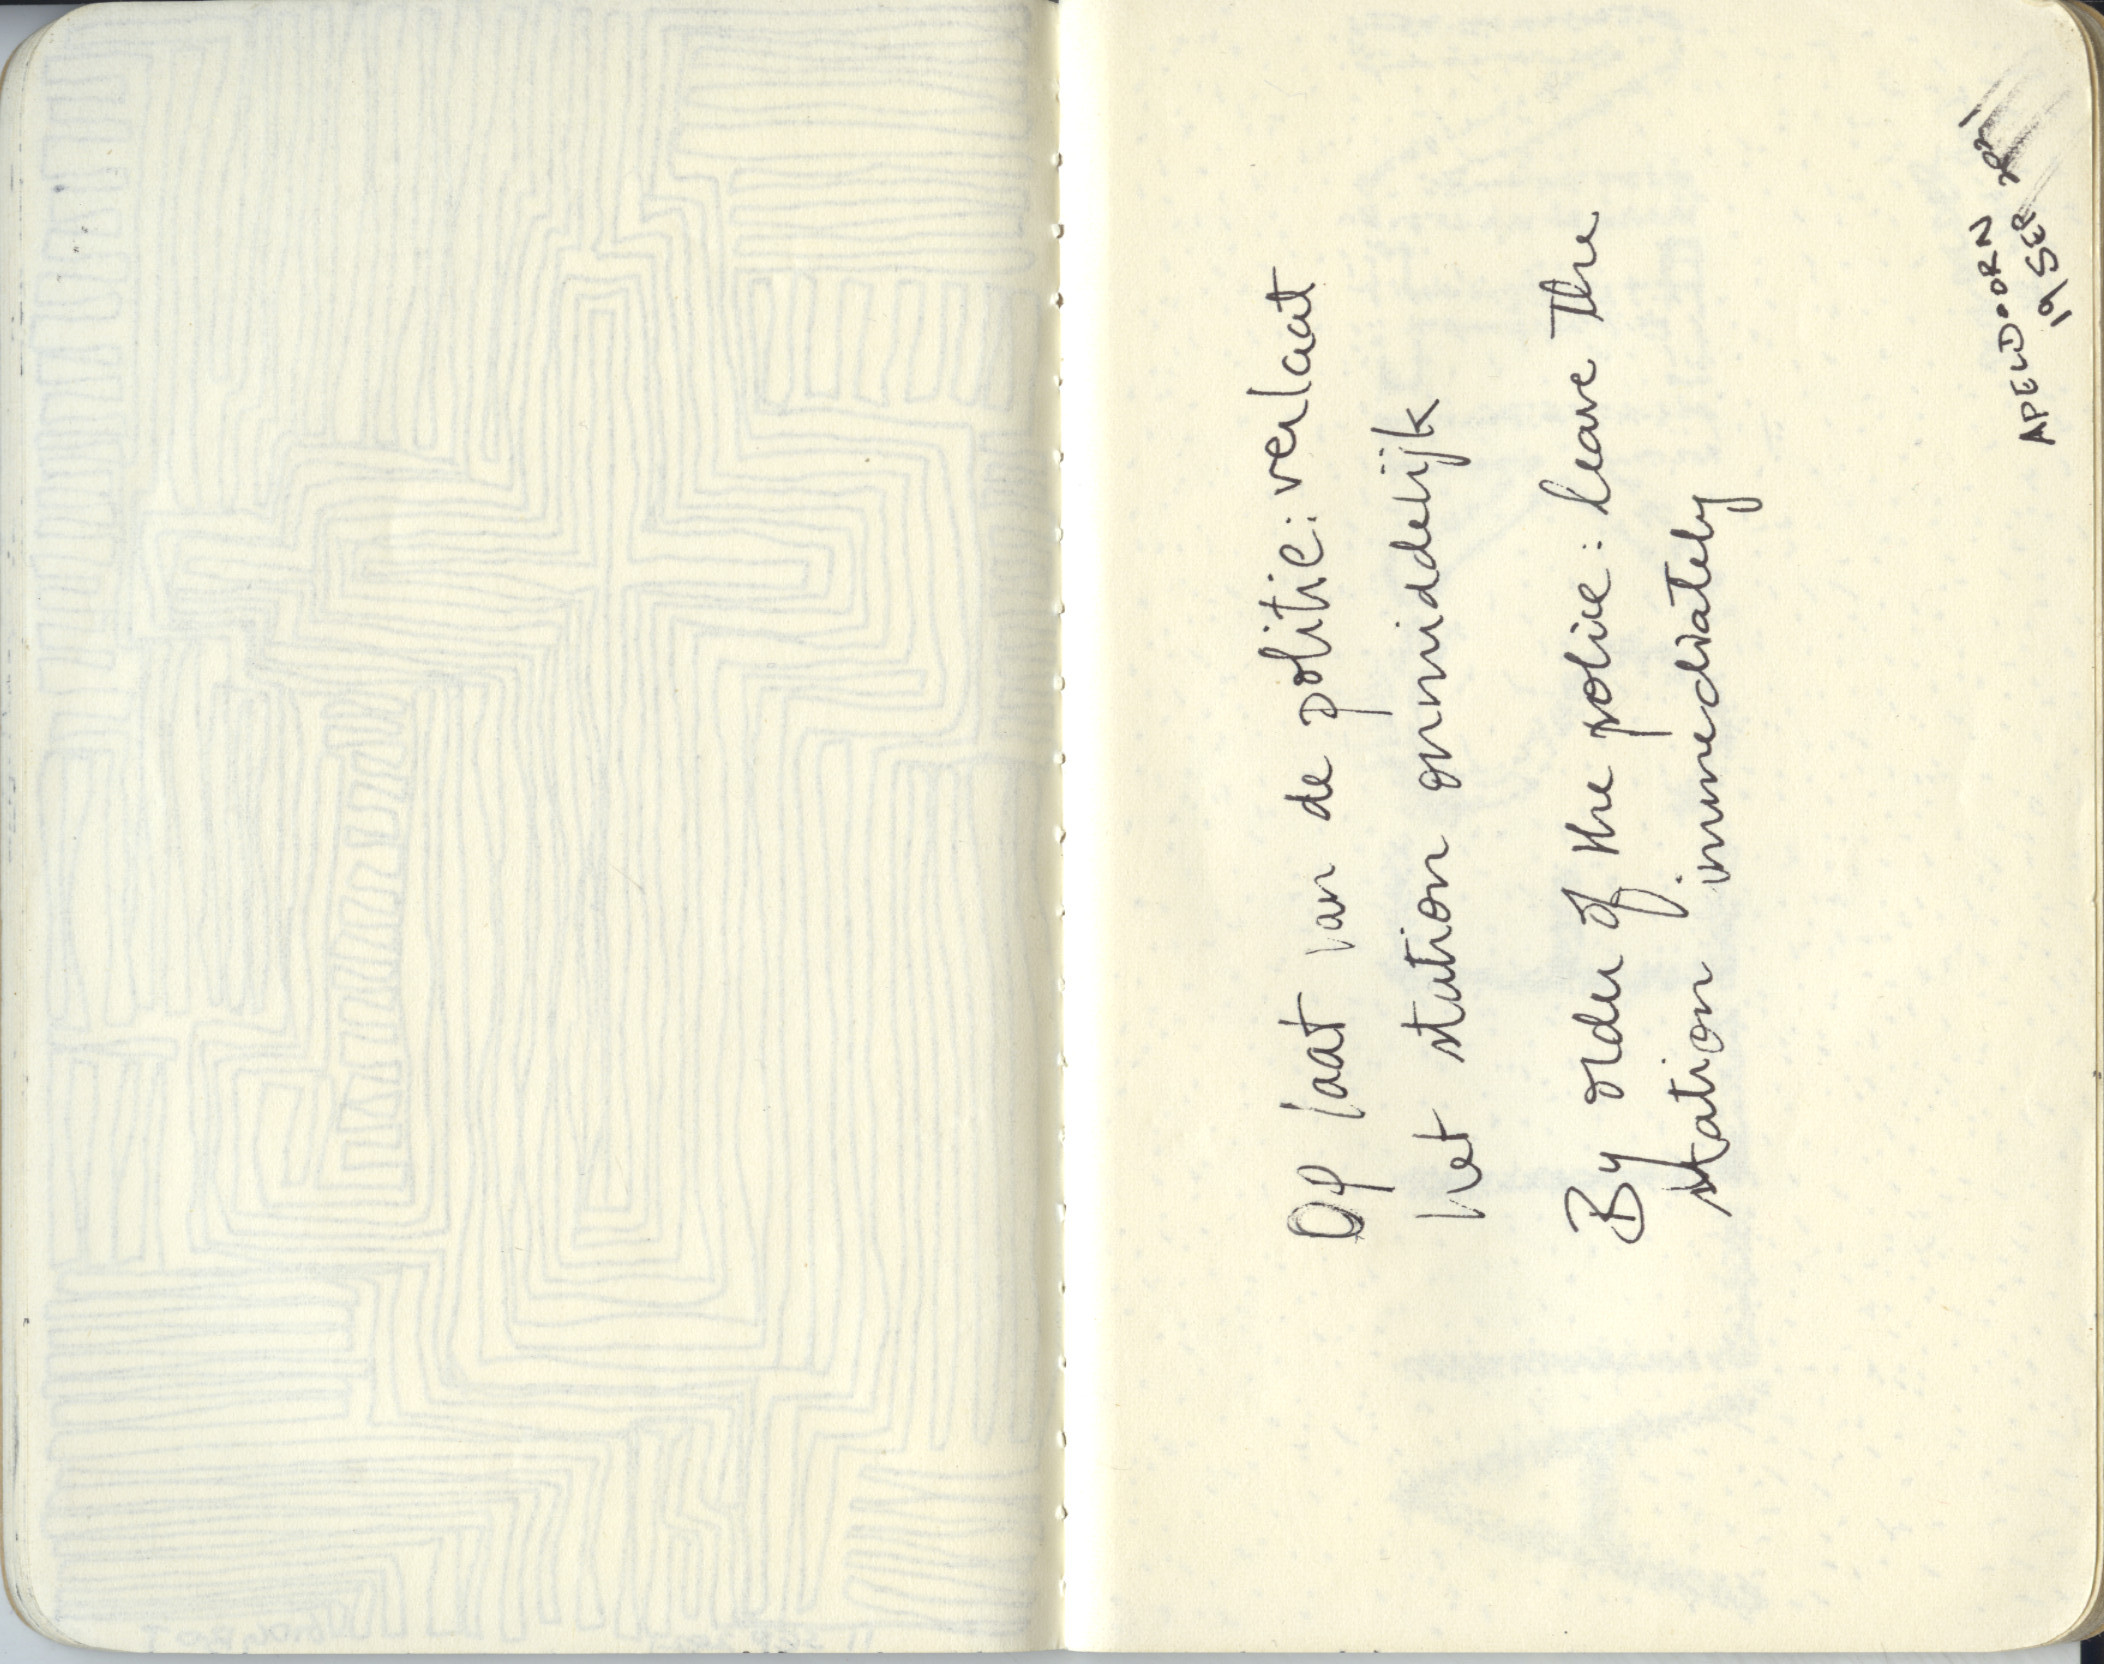 Op laat van de politie: verlaat
het station onmiddelijk
By order of the police: leave the
station immediately
APELDOORN
19 SEP